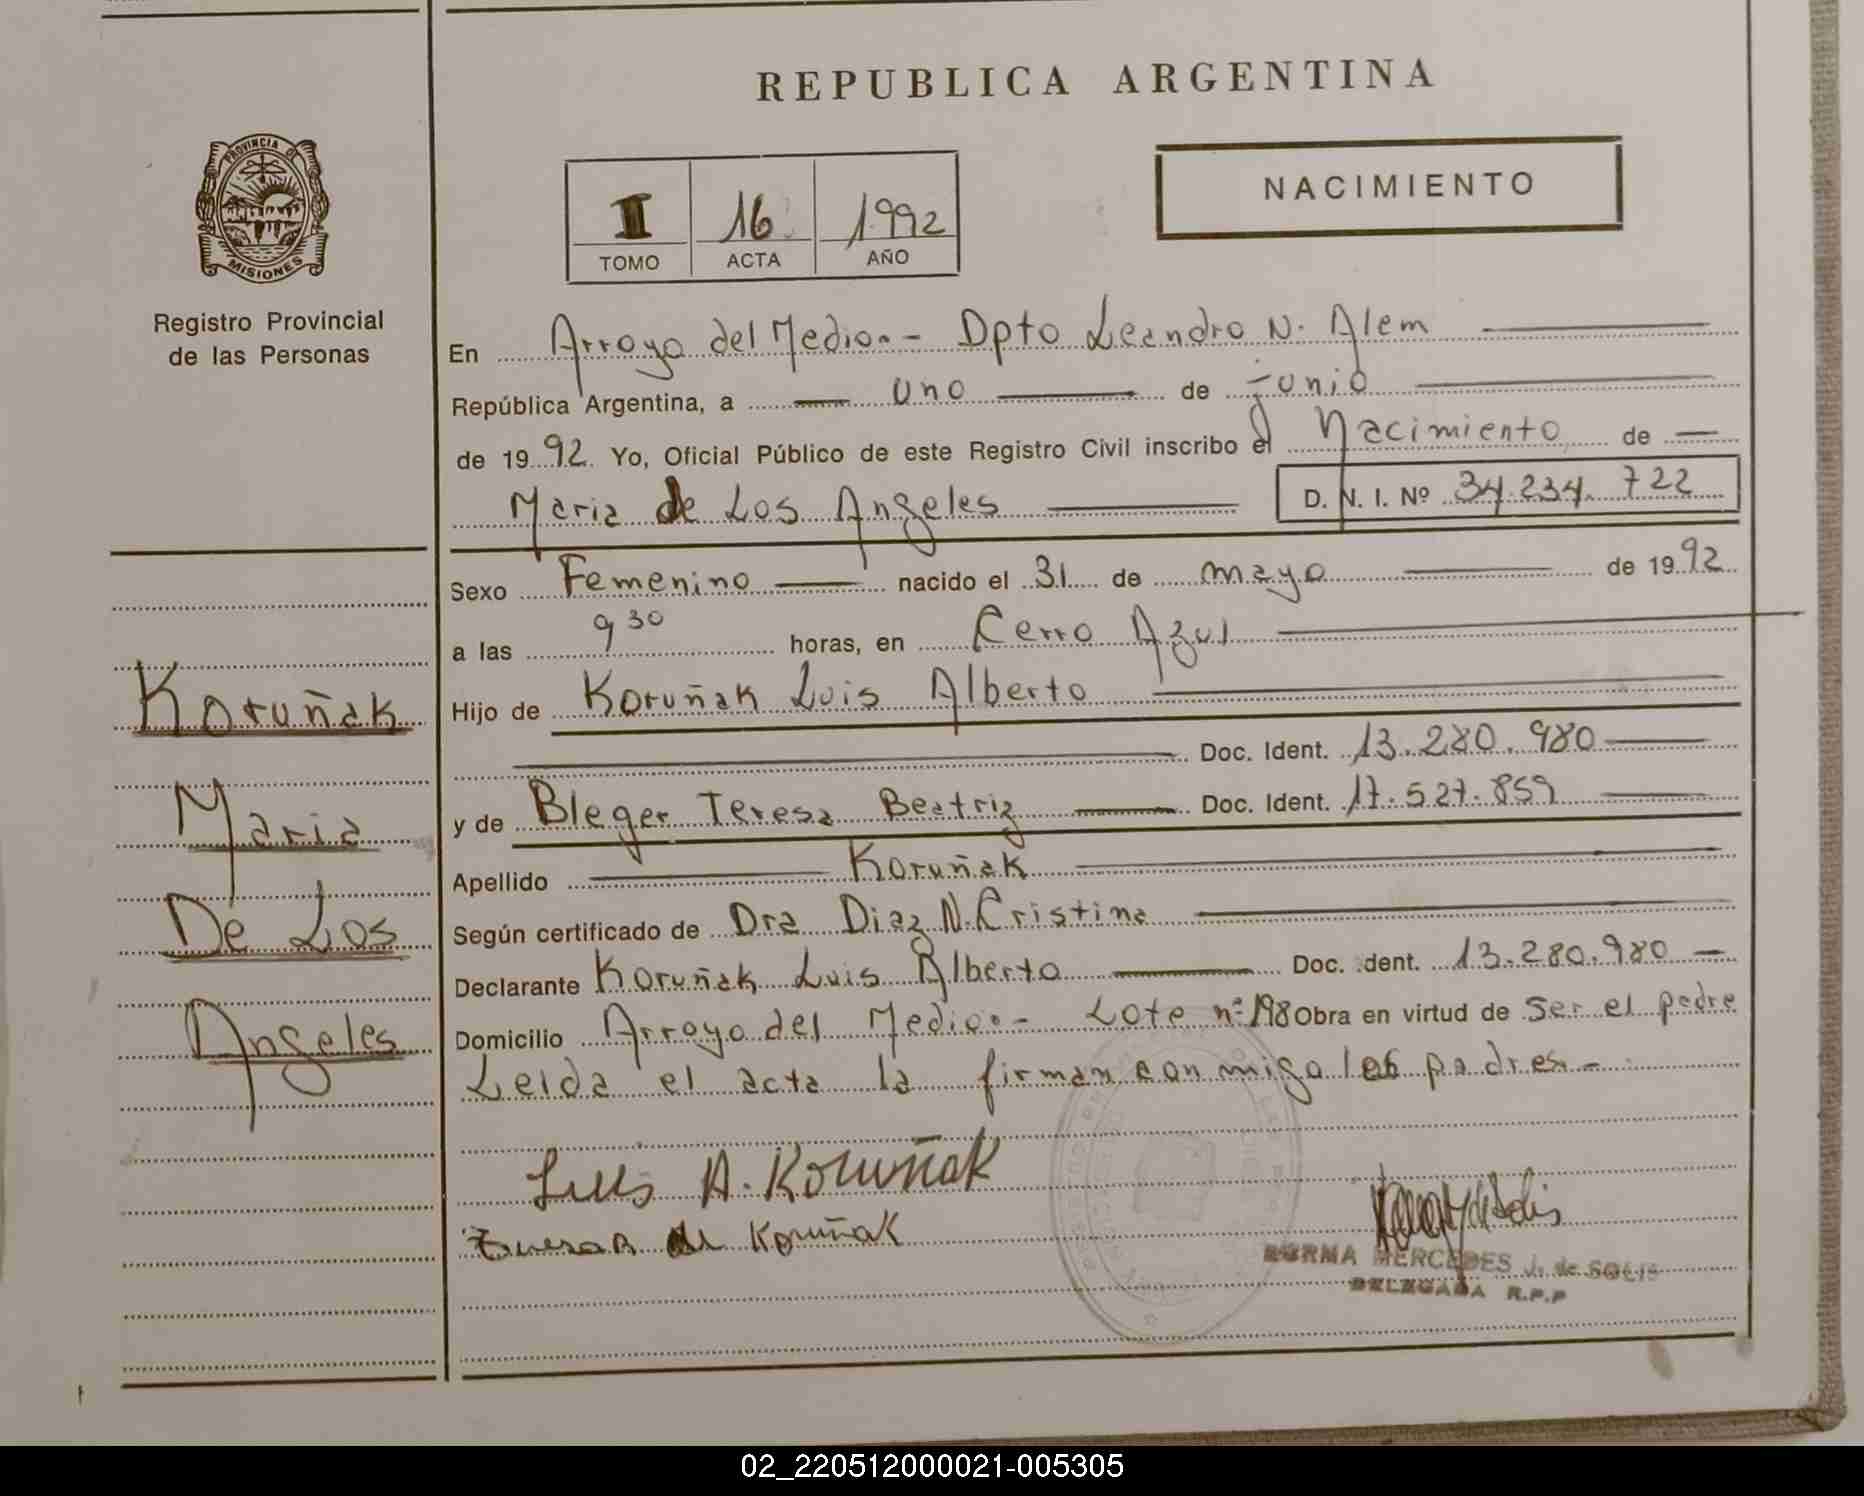 REPUBLICA ARGENTINA
PROVINCIA DE
MISIONES
Registro Provincial
de las Personas
I 16 1992
TOMO ACTA AÑO
NACIMIENTO
En Arroyo del Medio.- Dpto Leandro N. Alem
República Argentina, a uno de junio
de 1992 Yo, Oficial Público de este Registro Civil inscribo el Nacimiento de
Maria de Los Angeles D. N. I. Nº 34.234.722
Sexo Femenino nacido el 31 de mayo de 1992
a las 9 30 horas, en Cerro Azul
Hijo de Koruñak Luis Alberto
Doc. Ident. 13.280.980
y de Bleger Teresa Beatriz Doc. Ident. 17.527.859
Apellido Koruñak
Según certificado de Dra Diaz N. Cristina
Declarante Koruñak Luis Alberto Doc. Ident. 13.280.980
Domicilio Arroyo del Medio.- Lote nº 198 Obra en virtud de ser el padre
Leida el acta la firman conmigo los padres.-
Koruñak
Maria
De Los
Angeles
Luis A. Koruñak
Teresa B. de Koruñak
NORMA MERCEDES J. de SOLIS
DELEGADA R.P.P
02_220512000021-005305